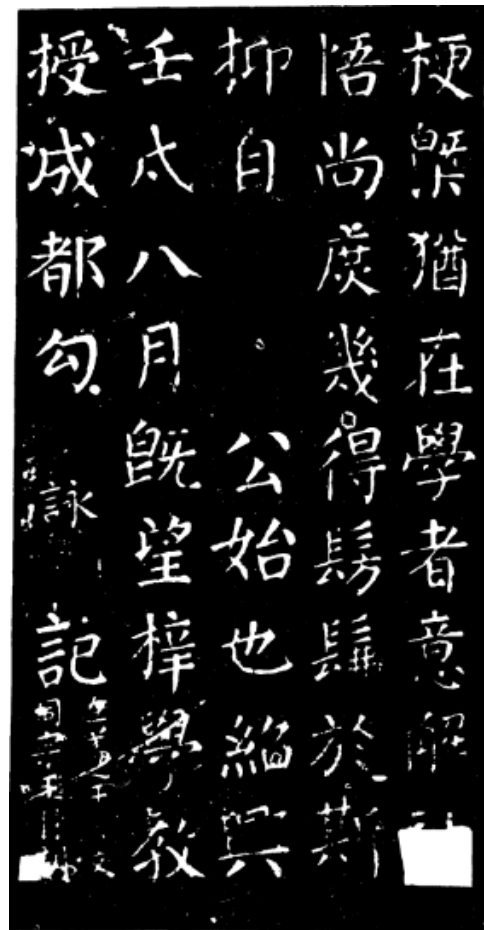 梗槩猶在學者意解
悟尚庶幾得髣髴於斯
抑自 公始也紹興
壬戌八月既望梓學教
授成都勾 詠 記